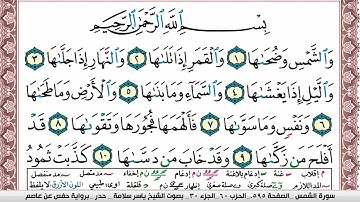 بِسْمِ اللَّهِ الرَّحْمَٰنِ الرَّحِيمِ
وَالشَّمْسِ وَضُحَىٰهَا ١ وَالْقَمَرِ إِذَا تَلَىٰهَا ٢ وَالنَّهَارِ إِذَا جَلَّىٰهَا ٣
وَاللَّيْلِ إِذَا يَغْشَىٰهَا ٤ وَالسَّمَاءِ وَمَا بَنَىٰهَا ٥ وَالْأَرْضِ وَمَا طَحَىٰهَا
٦ وَنَفْسٍ وَمَا سَوَّىٰهَا ٧ فَأَلْهَمَهَا فُجُورَهَا وَتَقْوَىٰهَا ٨ قَدْ
أَفْلَحَ مَن زَكَّىٰهَا ٩ وَقَدْ خَابَ مَن دَسَّىٰهَا ١٠ كَذَّبَتْ ثَمُودُ
سورة الشمس . الصفحة ٥٩٥ . الحزب ٦٠ . الجزء ٣٠ . بصوت الشيخ ياسر سلامة .. حدر . برواية حفص عن عاصم